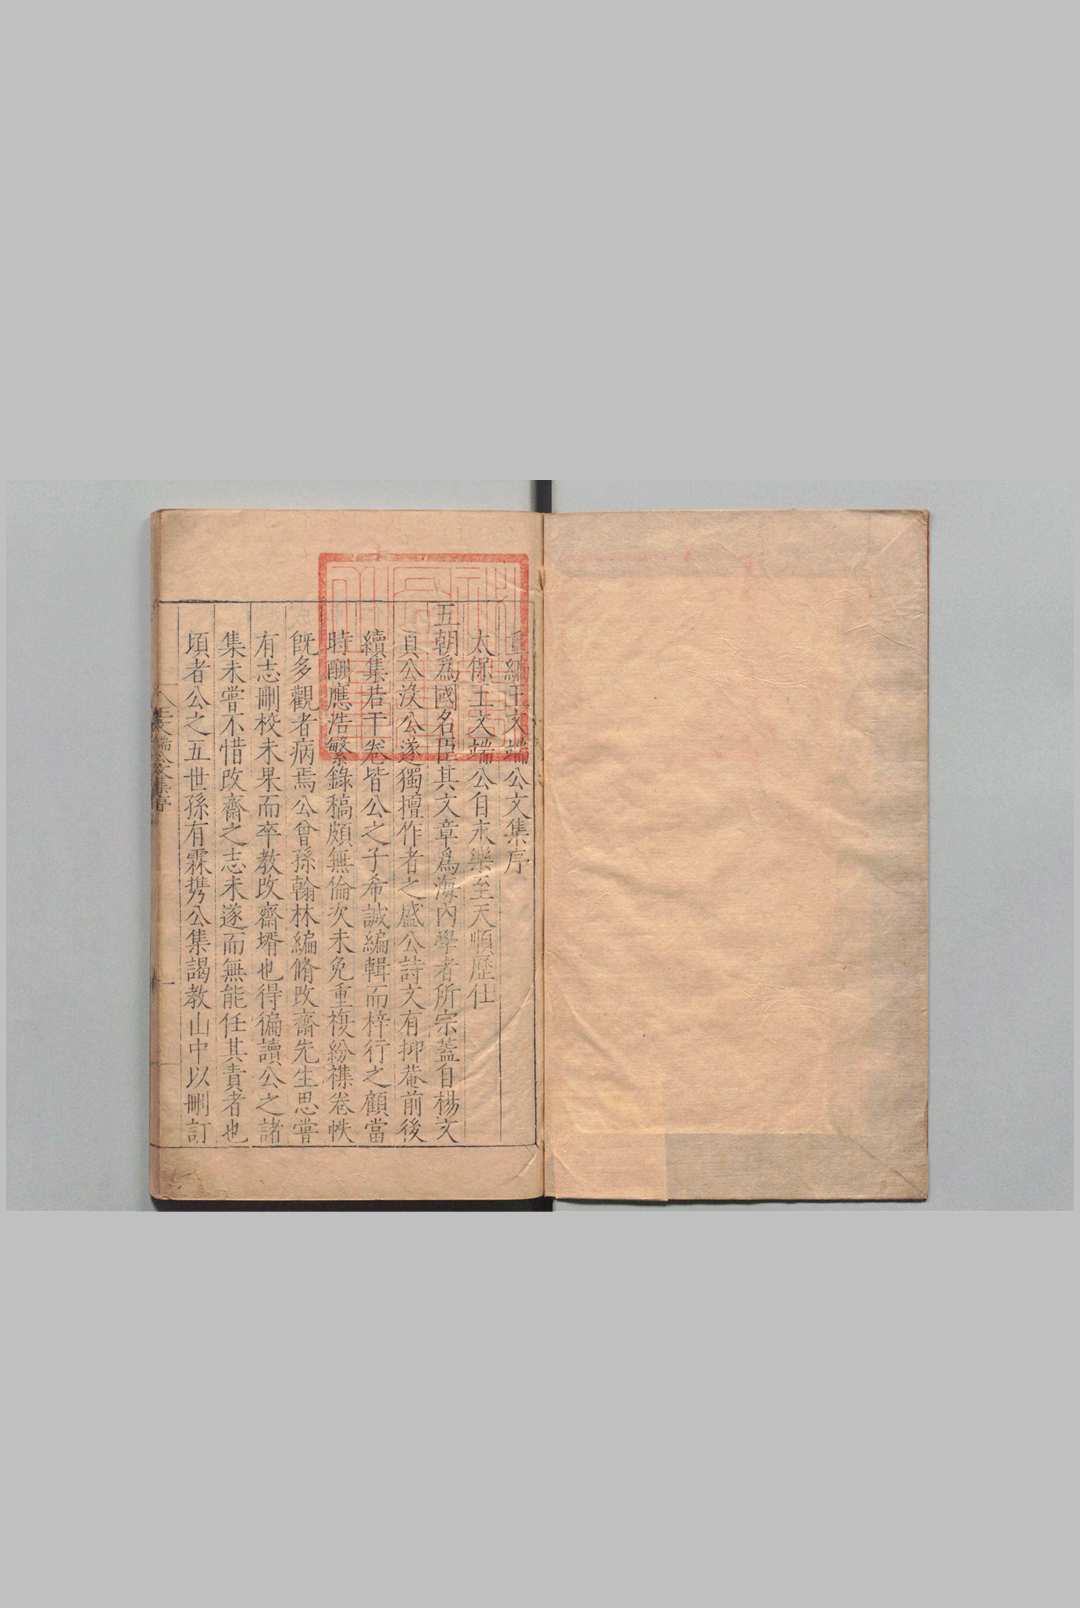 重編王文端公文集序
太保王文端公自永樂至天順歷仕
五朝為國名臣其文章為海內學者所宗蓋自楊文
貞公沒公遂獨擅作者之盛公詩文有抑菴前後
續集若干卷皆公之子希誠編輯而梓行之顧當
時酬應浩繁錄稿頗無倫次未免重複紛襍卷帙
旣多觀者病焉公曾孫翰林編脩改齋先生思嘗
有志刪校未果而卒教改齋壻也得徧讀公之諸
集未嘗不惜改齋之志未遂而無能任其責者也
頃者公之五世孫有霖携公集謁教山中以刪訂
王文端公文集序
一